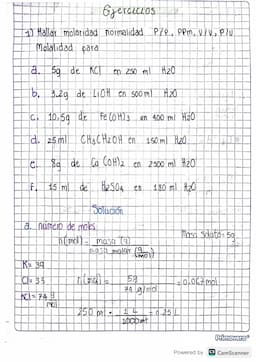 Ejercicios
1) Hallar molaridad normalidad P/P, PPm, V/V, P/V
Molalidad para
a. 5g de KCl en 250 ml H2O
b. 3.2g de LiOH en 500ml H2O
c. 10,5g de Fe(OH)3 en 400 ml H2O
d. 25ml CH3CH2OH en 150ml H2O
e. 8g de Ca(OH)2 en 2500 ml H2O
f. 15 ml de H2SO4 en 180 ml H2O
Solución
a. número de mols
n(mol) = masa (g)
masa molar (g/mol)
Masa Soluto= 5g
K= 39
Cl= 35
n(mol) = 5g = 0.067mol
74 g/mol
KCl= 74 g/mol
250 ml · 1 L = 0.25 L
1000ml
Powered by CamScanner